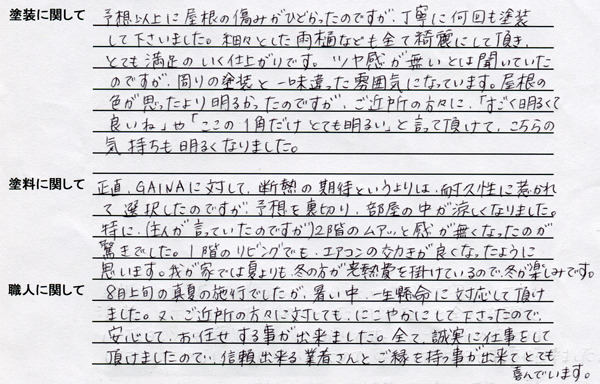 塗装に関して 予想以上に屋根の傷みがひどかったのですが、丁寧に何回も塗装
して下さいました。細々とした雨樋なども全て綺麗にして頂き、
とても満足のいく仕上がりです。ツヤ感が無いとは聞いていた
のですが、周りの塗装と一味違った雰囲気になっています。屋根の
色が思ったより明るかったのですが、ご近所の方々に、「すごく明るくて
良いね」や「ここの1角だけとても明るい」と言って頂けて、こちらの
気持ちも明るくなりました。
塗料に関して 正直、GAINAに対して、断熱の期待というよりは、耐久性に惹かれ
て選択したのですが、予想を裏切り、部屋の中が涼しくなりました。
特に、住人が言っていたのですが)2階のムアッと感が無くなったのが
驚きでした。1階のリビングでも、エアコンの効きが良くなったように
思います。我が家では夏よりも、冬の方が光熱費を掛けているので、冬が楽しみです。
職人に関して 8月上旬の真夏の施行でしたが、暑い中、一生懸命に対応して頂け
ました。又、ご近所の方々に対しても、にこやかにして下さったので、
安心して、お任せする事が出来ました。全て、誠実に仕事をして
頂けましたので、信頼出来る業者さんとご縁を持つ事が出来てとても
喜んでいます。